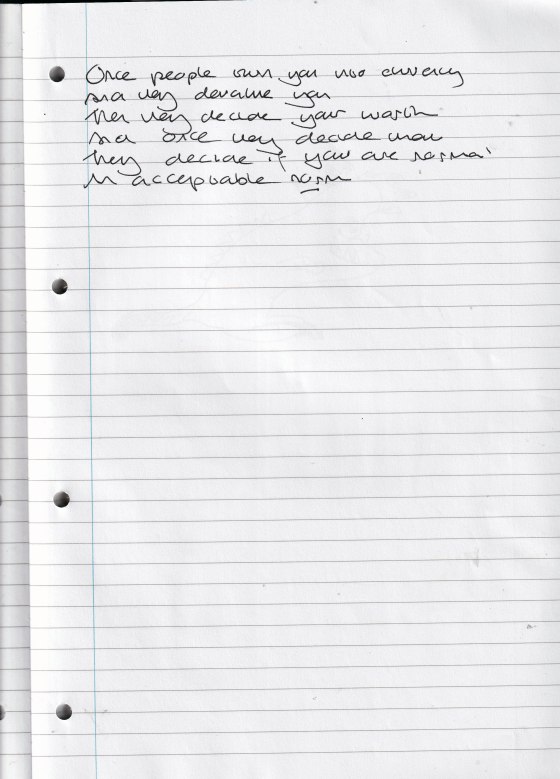 Once people own you into currency
and they devalue you
then they decide your worth
and once they decide that
they decide if you are normal
An acceptable norm